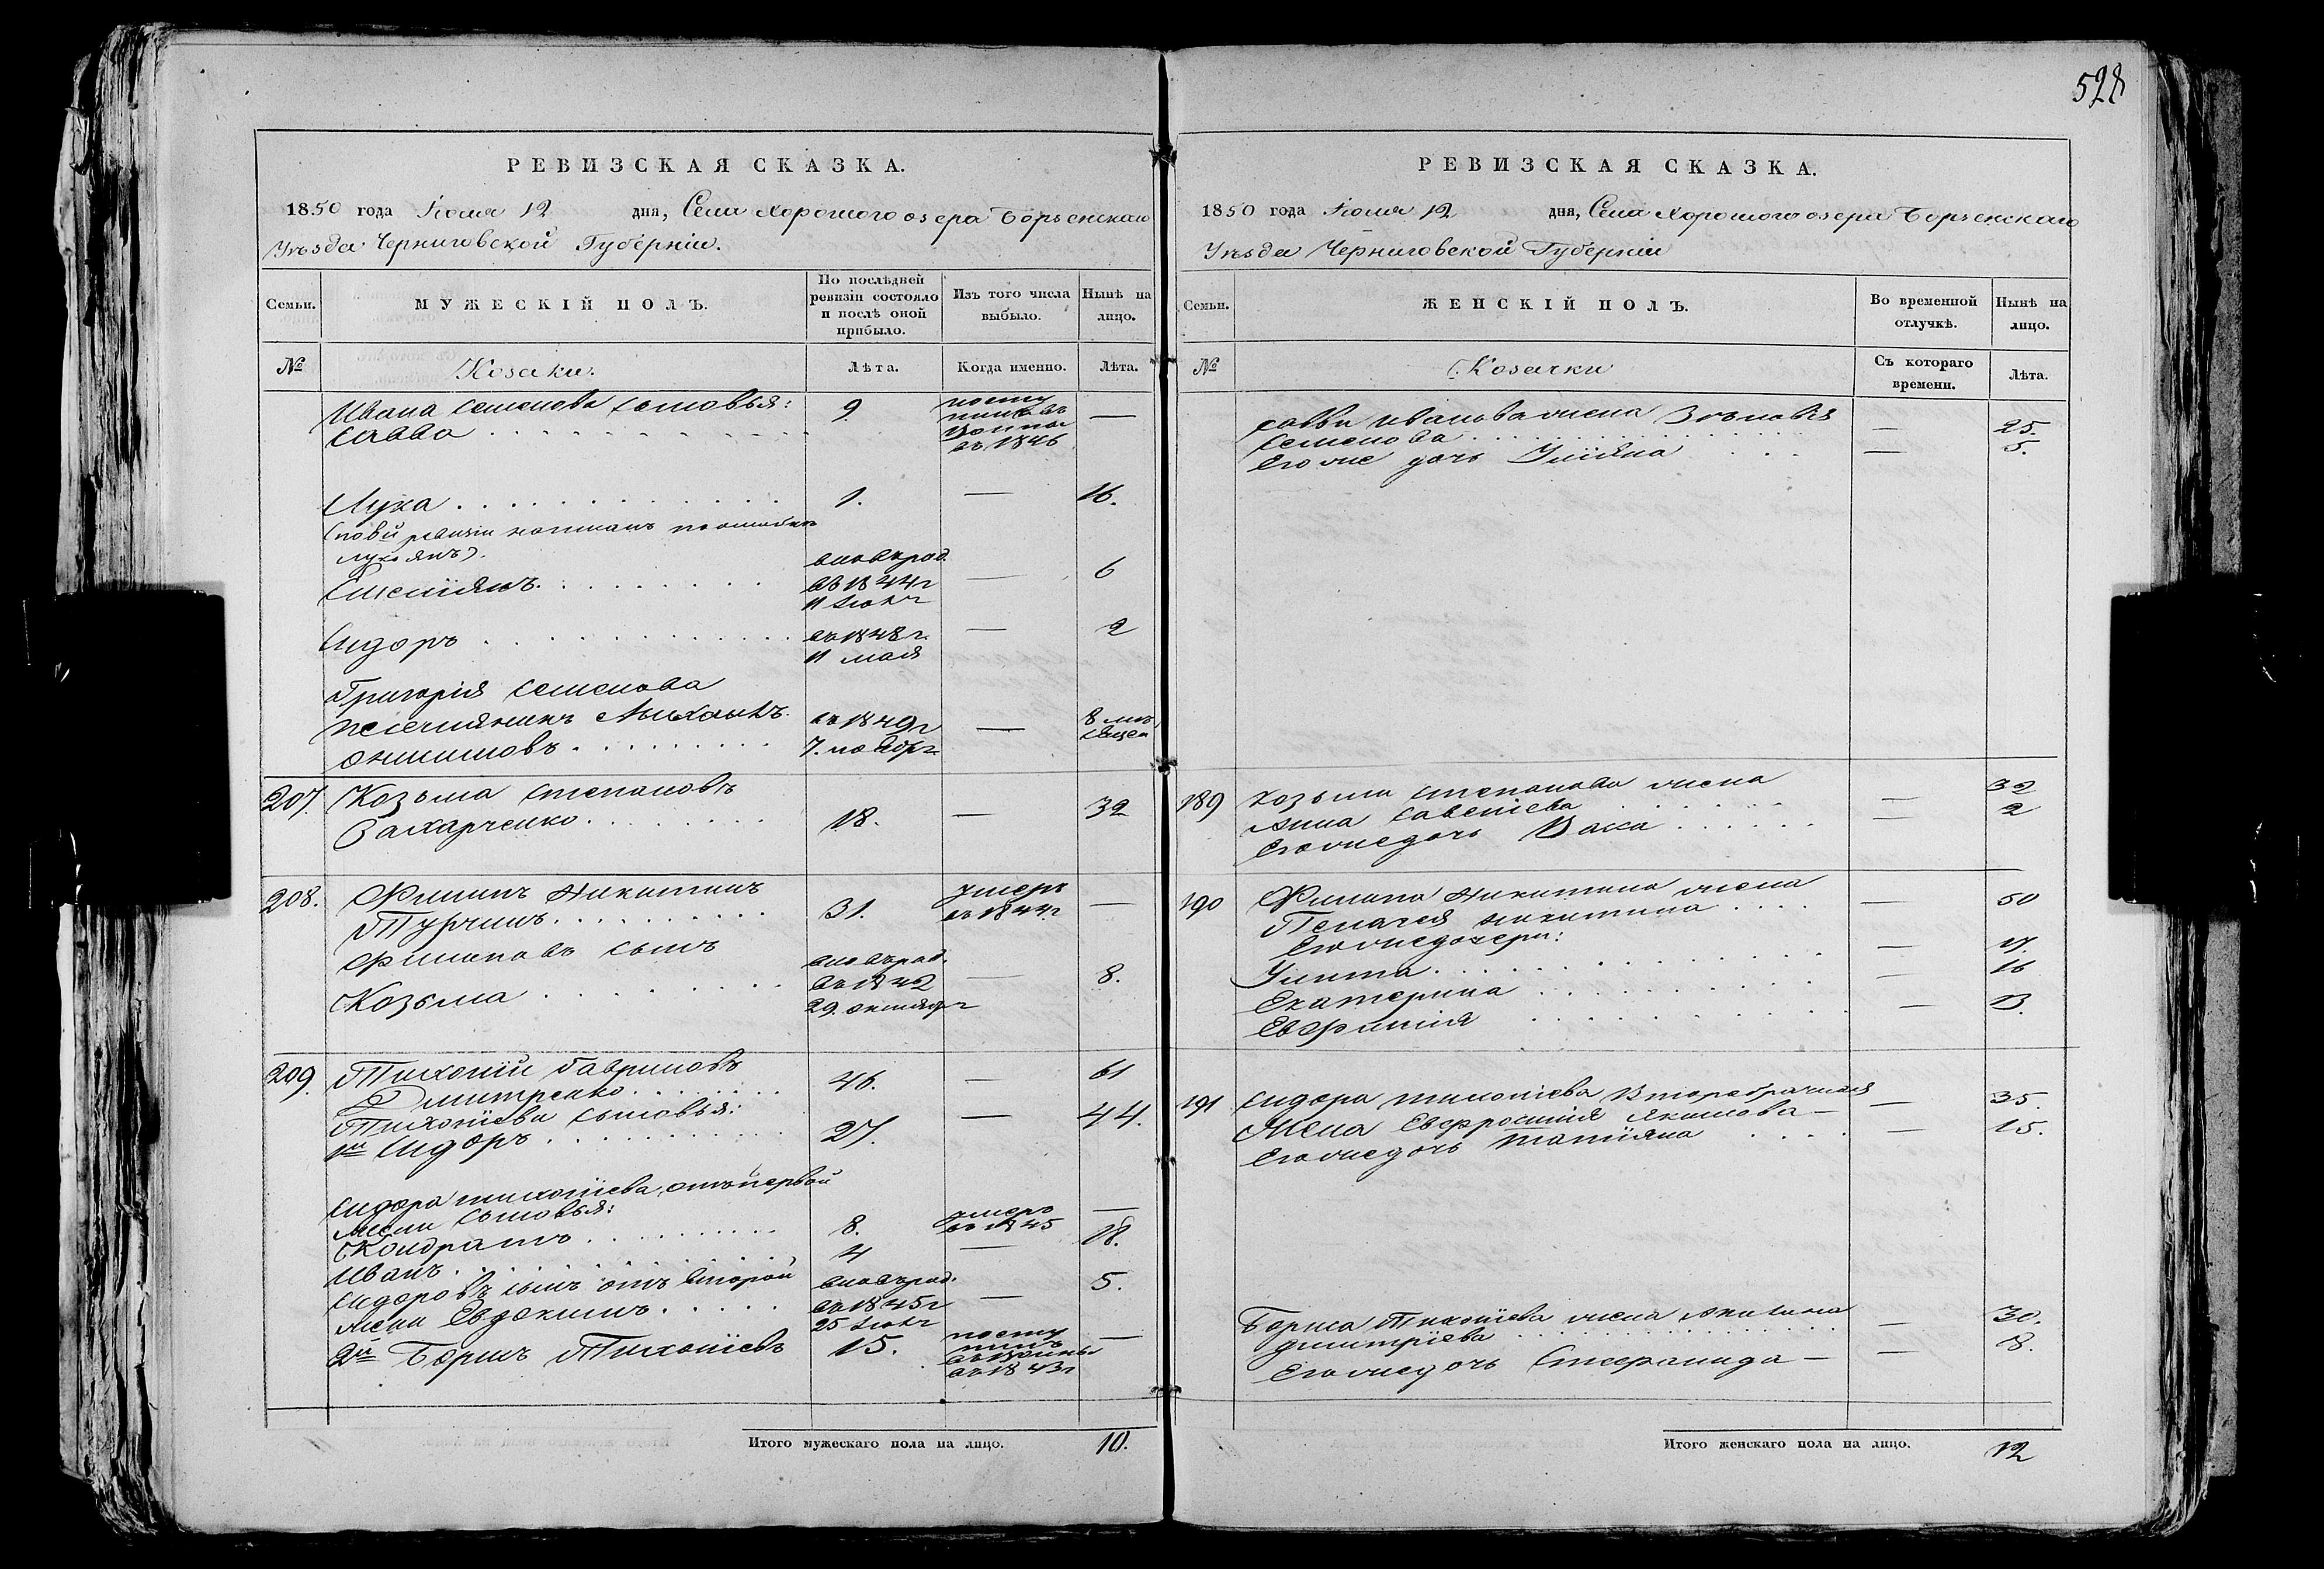 528
РЕВИЗСКАЯ СКАЗКА.
1850 года Июля 12 дня, Села Хорошого озера Борзенскаго
Уѣзда Черниговской Губерніи.
Семьи. МУЖЕСКІЙ ПОЛЪ. По послѣдней ревизіи состояло и послѣ оной прибыло. Изъ того числа выбыло. Нынѣ на лицо.
№ Козаки. Лѣта. Когда именно. Лѣта.
Ивана Семенова сыновья:
Савва 9. посту
въ 1846
Лука 1. — 16.
ревизіи написанъ по ошибки
Лукьянъ).
вновь род.
въ 1844 г — 6
Сидоръ въ 1848 г. — 2
11 мая
Григорія Семенова
племянникъ
Онисимовъ въ 1849 г — 8 мѣ
7. ноября сяцев
207. Козьма Степановъ
Захарченко 18. — 32
208. Филипъ Никитинъ умеръ
Турчинъ 31. въ 1844 г —
Филиповъ сынъ вновь род.
Козьма въ 1842 — 8.
29. октября
209. Тихоній Гавриловъ
Дмитренко 46. — 61
Тихоніева сыновья:
1й Сидоръ 27. — 44.
Сидора Тихоніева, отъ первой
жены сыновья: умеръ
Кондратъ 8. въ 1845 —
Иванъ 4 — 18.
Сидоровъ сынъ отъ второй вновь род.
жены Евдокимъ въ 1845 г — 5.
25
2й Борисъ Тихоніевъ 15. посту
пилъ
въ 1843 г —
Итого мужескаго пола на лицо. 10.
РЕВИЗСКАЯ СКАЗКА.
1850 года Июля 12 дня, Села Хорошого озера Борзенскаго
Уѣзда Черниговской Губерніи
Семьи. ЖЕНСКІЙ ПОЛЪ. Во временной отлучкѣ. Нынѣ на лицо.
№ Козачки Съ котораго времени. Лѣта.
Саввы Иванова жена Зѣновія
Семенова — 25.
Его же дочь Уліяна — 5.
189 Козьмы Степанова жена
Анна Савеліева — 32
Его же дочь Васса — 2
190 Филипа Никитина жена
Пелагея Никитина — 50
Его же дочери:
Улита — 17.
Екатерина — 16
Евфимія — 13.
191 Сидора Тихоніева второбрачная
жена Евфросинія Якимова — 35.
Его же дочь Татіяна — 15.
Бориса Тихоніева жена Акилина
Дмитріева — 30.
Его же дочь Степанида — 8.
Итого женскаго пола на лицо. 12